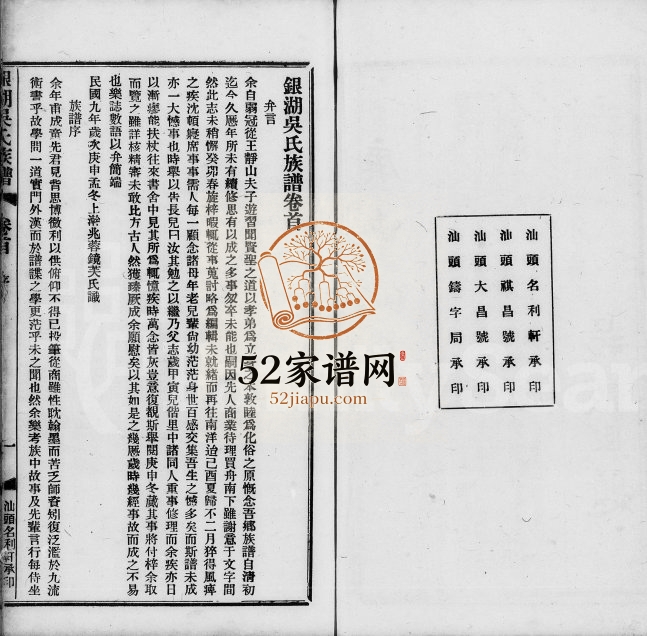 汕頭名利軒承印
汕頭祺昌號承印
汕頭大昌號承印
汕頭鑄字局承印
銀湖吳氏族譜卷首
弁言
余自弱冠從王靜山夫子遊習聞賢聖之道以孝弟爲立 本敦睦爲化俗之原慨念吾鄉族譜自清初
迄今久歷年所未有續修思有以成之多事怱卒未能也嗣因先人商業待理買舟南下雖謝意于文字間
然此志未稍懈癸卯春旋梓暇輒從事蒐討略爲編輯未就緒而再往南洋迨己酉夏歸不二月猝得風痺
之疾沈頓癈席事事需人每一顧念諸母年老兒輩尙幼茫茫身世百感交集吾生之憾多矣而斯譜未成
亦一大憾事也時舉以告長兒曰汝其勉之以繼乃父志歲甲寅兒偕里中諸同人重事修理而余疾亦日
以漸瘳能扶杖往來書舍中見其所爲輒憶疾時萬念皆灰豈意復覩斯舉閱庚申冬蕆其事將付梓余取
而覽之雖詳核精審未敢比方古人然獲臻厥成余願慰矣以其如是之幾歷歲時幾經事故而成之不易
也樂誌數語以弁簡端
民國九年歲次庚申孟冬上澣兆蓉鏡芙氏識
族譜序
余年甫成童先君見背思博微利以供俯仰不得已投筆從商雖性耽翰墨而苦乏師資矧復泛濫於九流
術書乎故學問一道實門外漢而於譜諜之學更茫乎未之聞也然余樂考族中故事及先輩言行每侍坐
銀湖吳氏族譜
卷首
序
一
汕頭名利軒承印
52家谱网
52jiapu.com